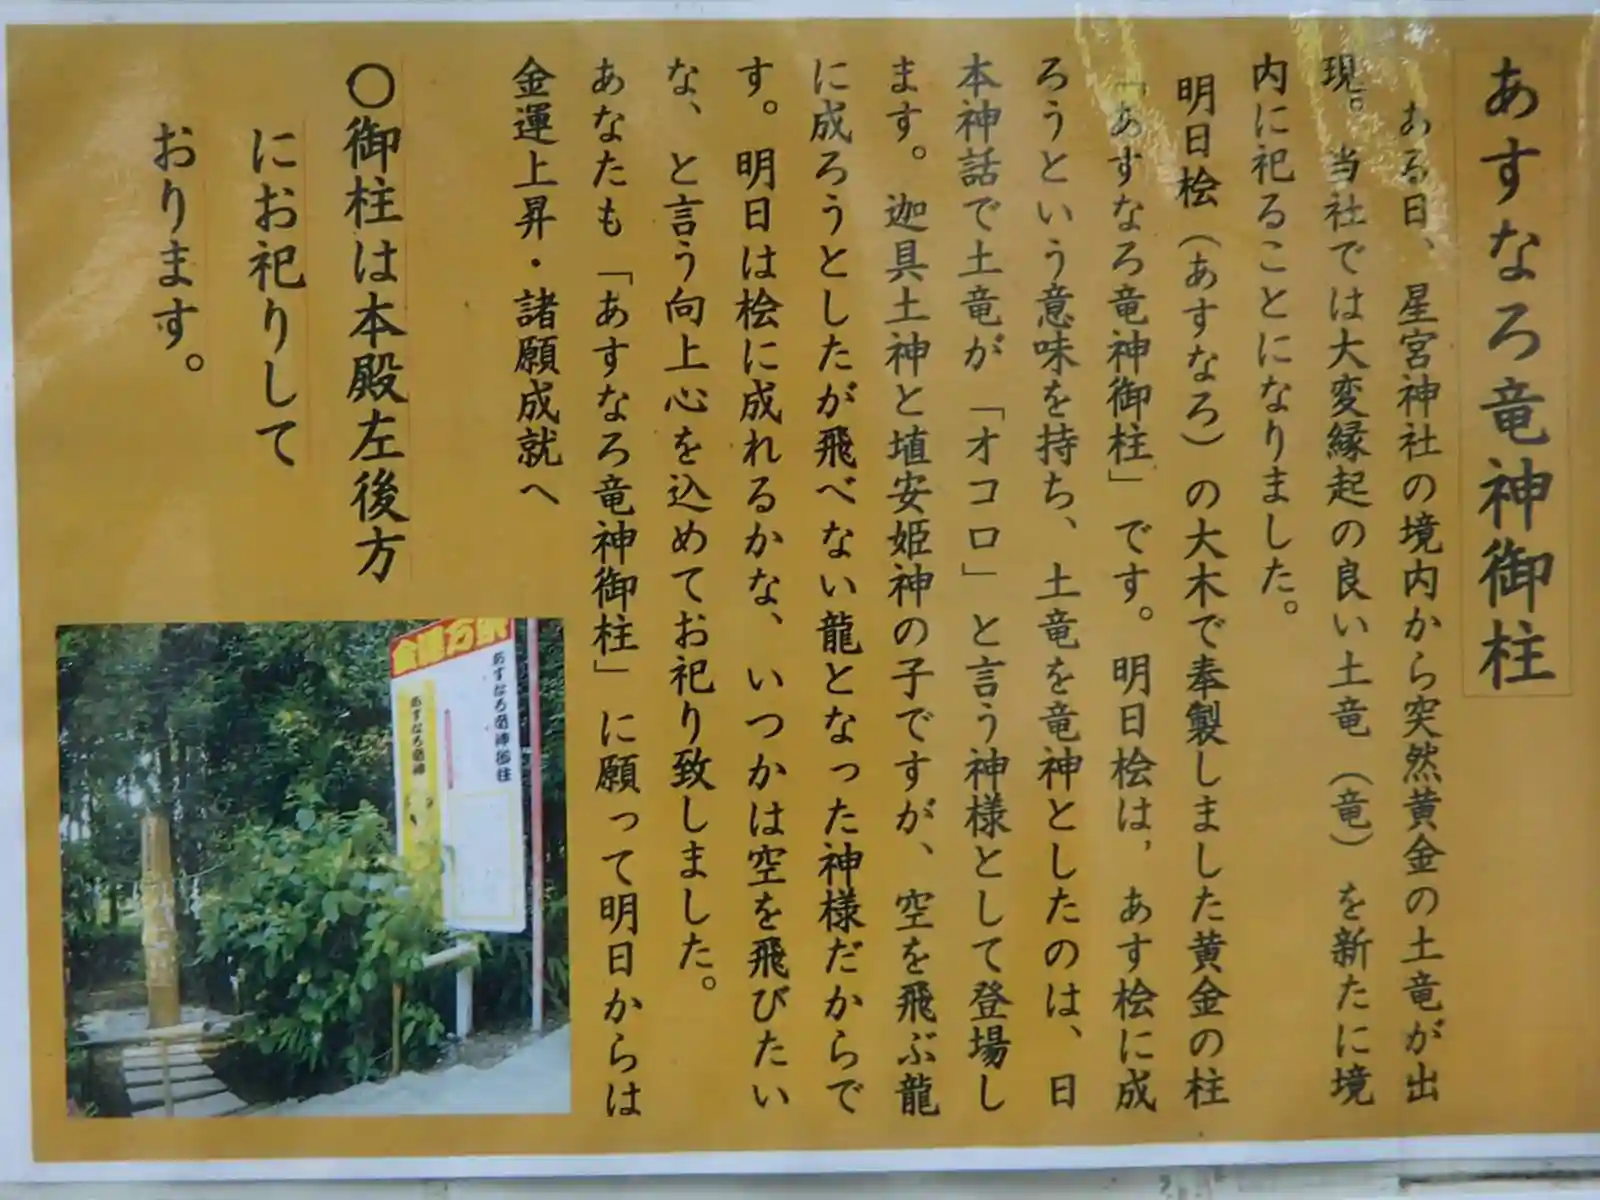 あすなろ竜神御柱
ある日、星宮神社の境内から突然黄金の土竜が出
現。当社では大変縁起の良い土竜（竜）を新たに境
内に祀ることになりました。
明日桧（あすなろ）の大木で奉製しました黄金の柱
「あすなろ竜神御柱」です。明日桧は，あす桧に成
ろうという意味を持ち、土竜を竜神としたのは、日
本神話で土竜が「オコロ」と言う神様として登場し
ます。迦具土神と埴安姫神の子ですが、空を飛ぶ龍
に成ろうとしたが飛べない龍となった神様だからで
す。明日は桧に成れるかな、いつかは空を飛びたい
な、と言う向上心を込めてお祀り致しました。
あなたも「あすなろ竜神御柱」に願って明日からは
金運上昇・諸願成就へ
〇御柱は本殿左後方
にお祀りして
おります。
あすなろ竜神御柱
あすなろ竜神